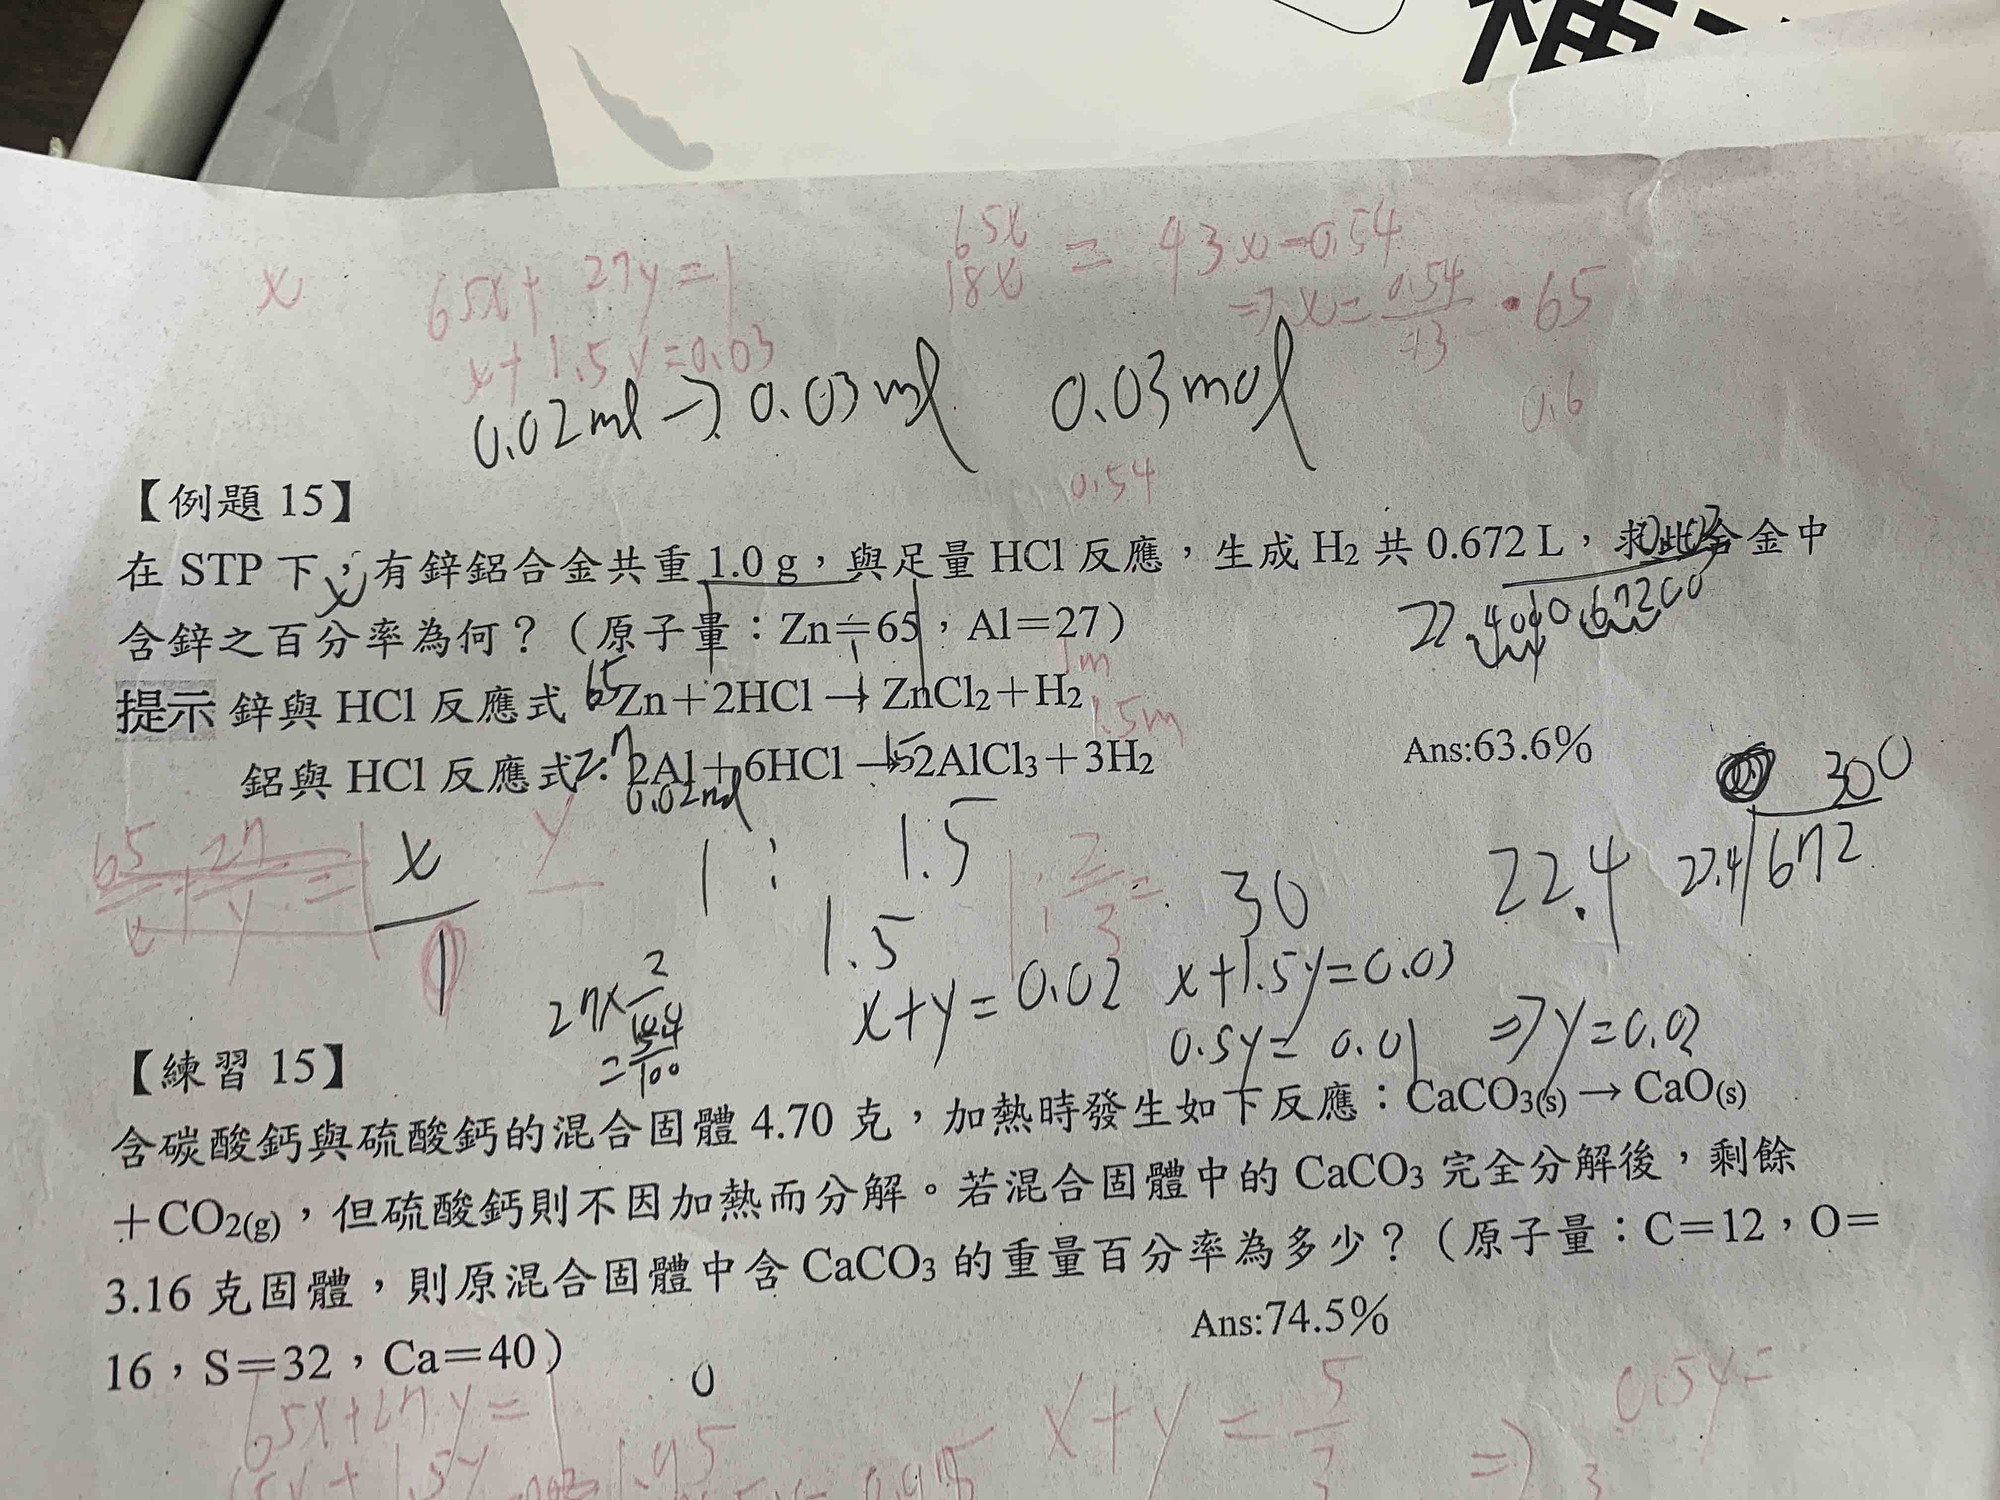 x 65x+27y=1 65x = 43x-0.54
x+1.5y=0.03 18x ⇒x=0.54/43 •65
0.02ml→0.03ml 0.03mol 0.6
0.54
【例題 15】
在 STP 下，有鋅鋁合金共重 1.0 g，與足量 HCl 反應，生成 H₂ 共 0.672 L，求此合金中
x
含鋅之百分率為何？（原子量：Zn＝65，Al＝27）
1m
提示 鋅與 HCl 反應式 65 Zn＋2HCl → ZnCl₂＋H₂
1.5m
鋁與 HCl 反應式：2Al＋6HCl → 2AlCl₃＋3H₂ Ans:63.6%
300
x y 1 : 1.5 22.4 22.4 672
1 1.5 30
27× x+y=0.02 x+1.5y=0.03
0.5y=0.01 ⇒y=0.02
【練習 15】
含碳酸鈣與硫酸鈣的混合固體 4.70 克，加熱時發生如下反應：CaCO₃(s) → CaO(s)
＋CO₂(g)，但硫酸鈣則不因加熱而分解。若混合固體中的 CaCO₃ 完全分解後，剩餘
3.16 克固體，則原混合固體中含 CaCO₃ 的重量百分率為多少？（原子量：C＝12，O＝
16，S＝32，Ca＝40） Ans:74.5%
0
65x+27y=1 x+y= 0.5y=